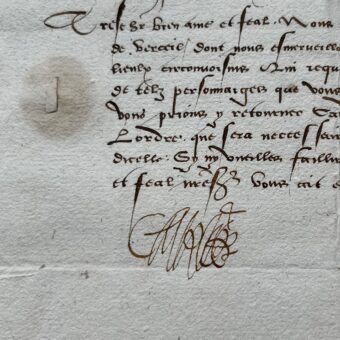 Trescher bien ame et feal. Nous
de Verceil, dont nous esmerveillo
lieulx circonvoisins Qui requ
de telz personnaiges que vous
vous prions y retourner Sa
Lordre que sera necessair
dicelle. Sy ny vueilles faillir
et feal Vous ait e